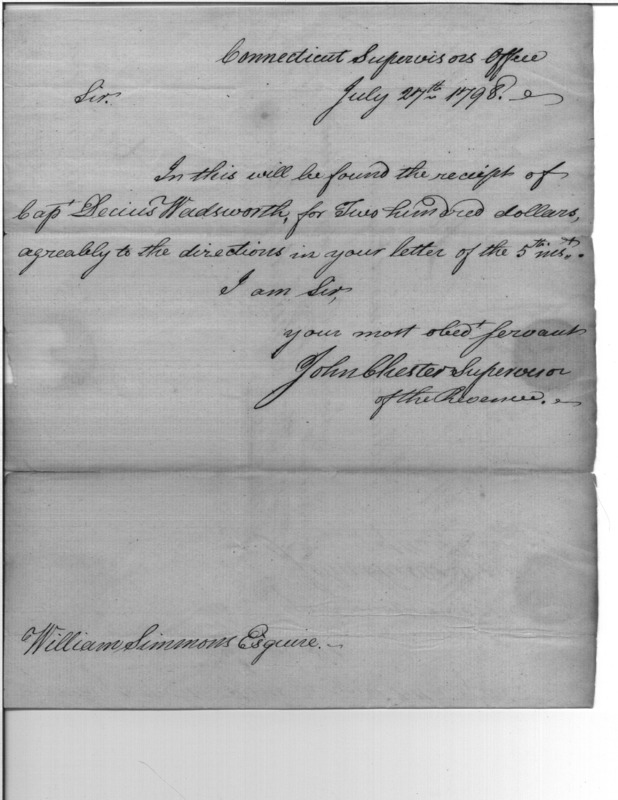 Connecticut Supervisors Office
Sir. July 27th 1798.
In this will be found the reciept of
Capt Decius Wadsworth, for Two hundred dollars,
agreably to the directions in your letter of the 5th inst.
I am Sir,
your most obedt servant
John Chester Supervisor
of the Revenue.
William Simmons Esquire.